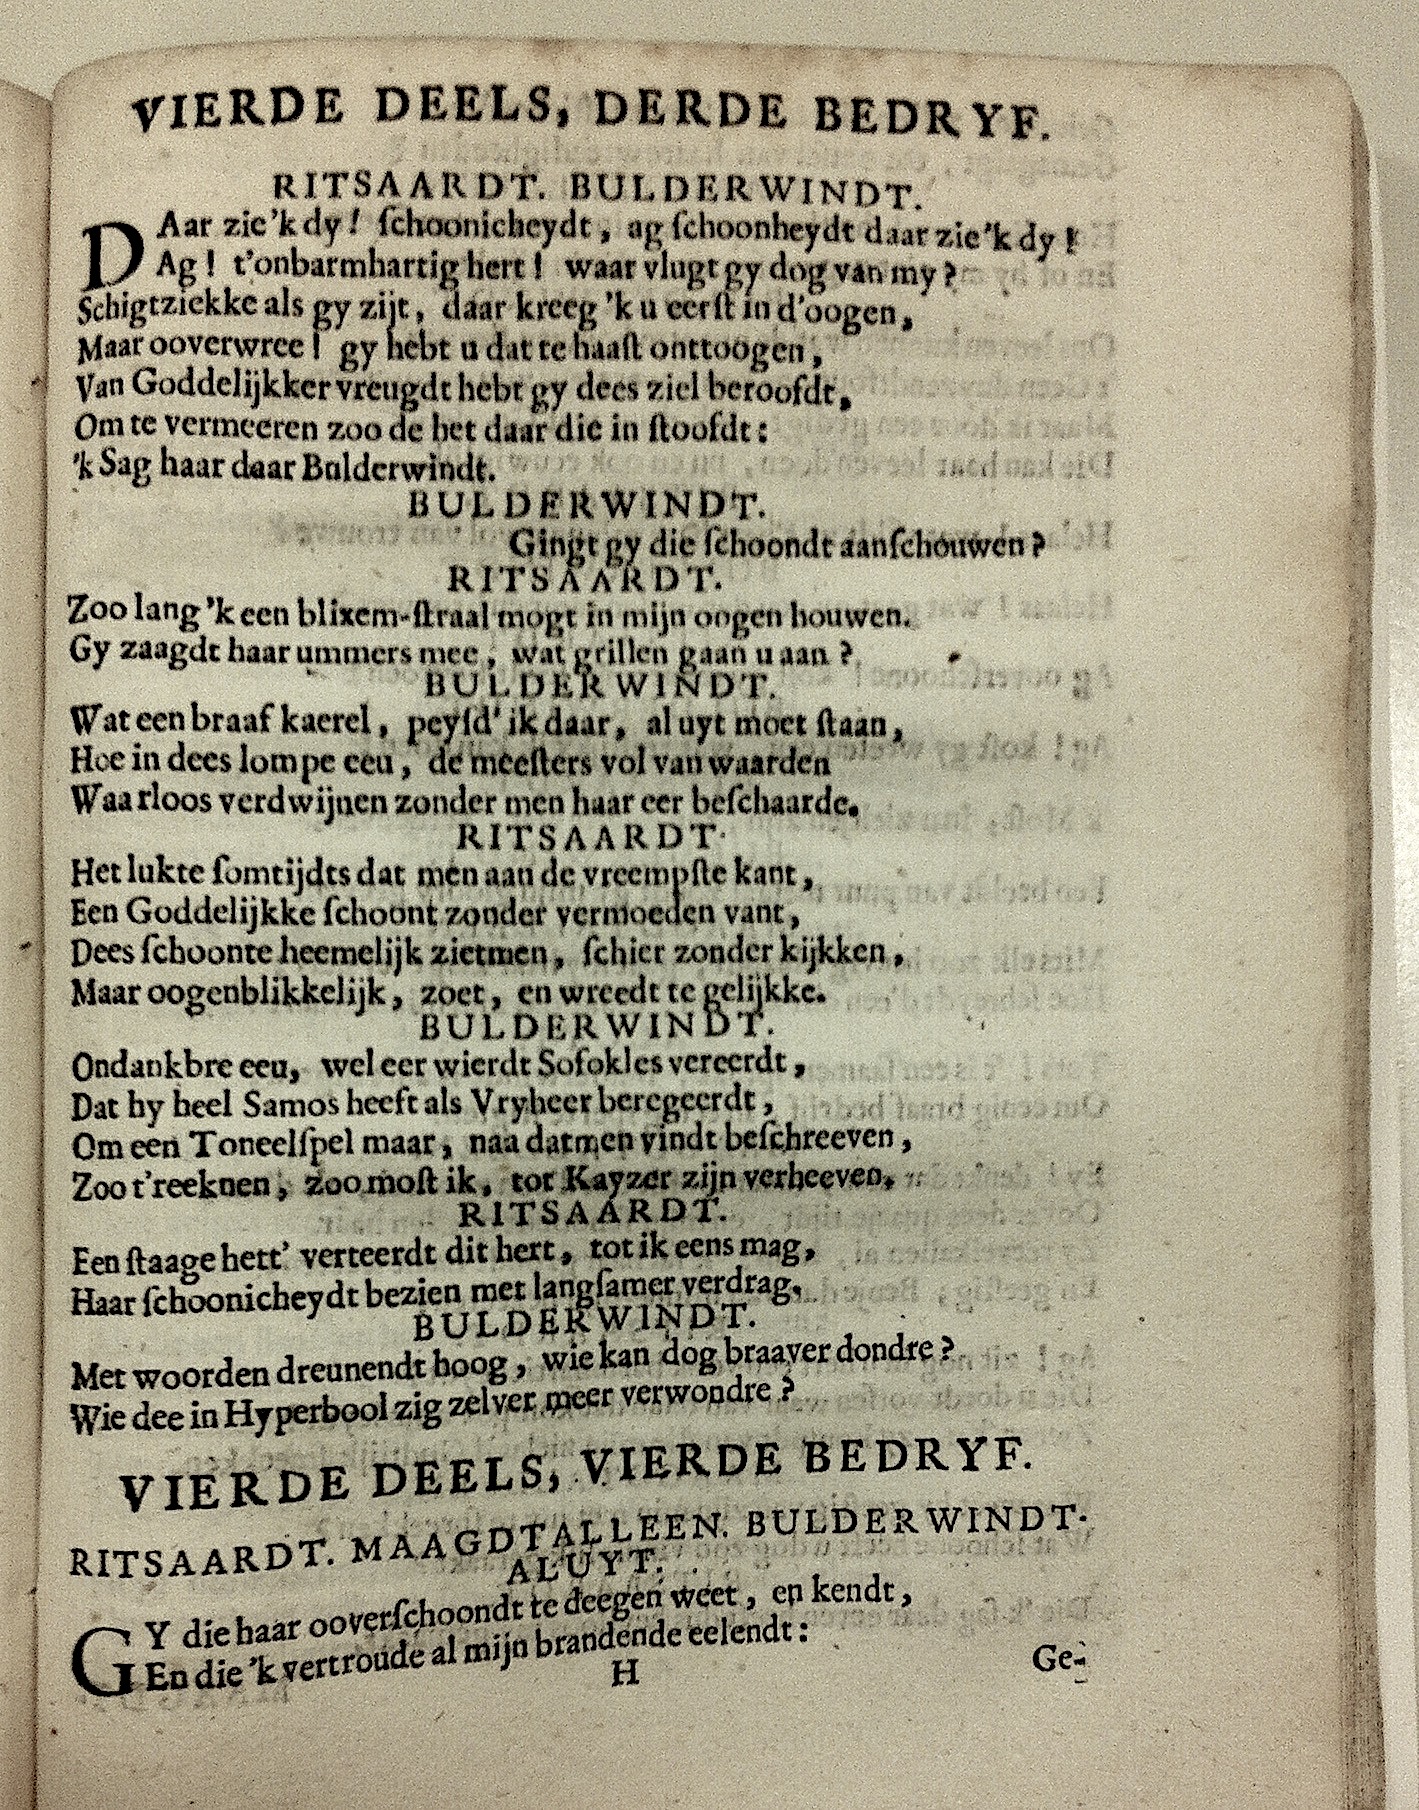 VIERDE DEELS, DERDE BEDRYF.
RITSAARDT. BULDERWINDT.
DAar zie'k dy! ſchoonicheydt, ag ſchoonheydt daar zie'k dy!
Ag! t'onbarmhartig hert! waar vlugt gy dog van my?
Schigtziekke als gy zijt, daar kreeg 'k u eerſt in d'oogen,
Maar ooverwree! gy hebt u dat te haaſt onttoogen,
Van Goddelijkker vreugdt hebt gy dees ziel beroofdt,
Om te vermeeren zoo de het daar die in ſtoofdt:
'k Sag haar daar Bulderwindt.
BULDERWINDT.
Gingt gy die ſchoondt aanſchouwen?
RITSAARDT.
Zoo lang 'k een blixem-ſtraal mogt in mijn oogen houwen.
Gy zaagdt haar ummers mee, wat grillen gaan u aan?
BULDERWINDT.
Wat een braaf kaerel, peyſd' ik daar, al uyt moet ſtaan,
Hoe in dees lompe eeu, de meeſters vol van waarden
Waarloos verdwijnen zonder men haar eer beſchaarde.
RITSAARDT.
Het lukte ſomtijdts dat men aan de vreempſte kant,
Een Goddelijkke ſchoont zonder vermoeden vant,
Dees ſchoonte heemelijk zietmen, ſchier zonder kijkken,
Maar oogenblikkelijk, zoet, en wreedt te gelijkke.
BULDERWINDT.
Ondankbre eeu, wel eer wierdt Sofokles vereerdt,
Dat hy heel Samos heeft als Vryheer beregeerdt,
Om een Toneelſpel maar, naa datmen vindt beſchreeven,
Zoo t'reeknen, zoo moſt ik, tot Kayzer zijn verheeven.
RITSAARDT.
Een ſtaage hett' verteerdt dit hert, tot ik eens mag,
Haar ſchoonicheydt bezien met langſamer verdrag.
BULDERWINDT.
Met woorden dreunendt hoog, wie kan dog braaver dondre?
Wie dee in Hyperbool zig zelver meer verwondre?
VIERDE DEELS, VIERDE BEDRYF.
RITSAARDT. MAAGDTALLEEN. BULDERWINDT.
ALUYT.
GY die haar ooverſchoondt te deegen weet, en kendt,
En die 'k vertroude al mijn brandende eelendt:
H Ge-